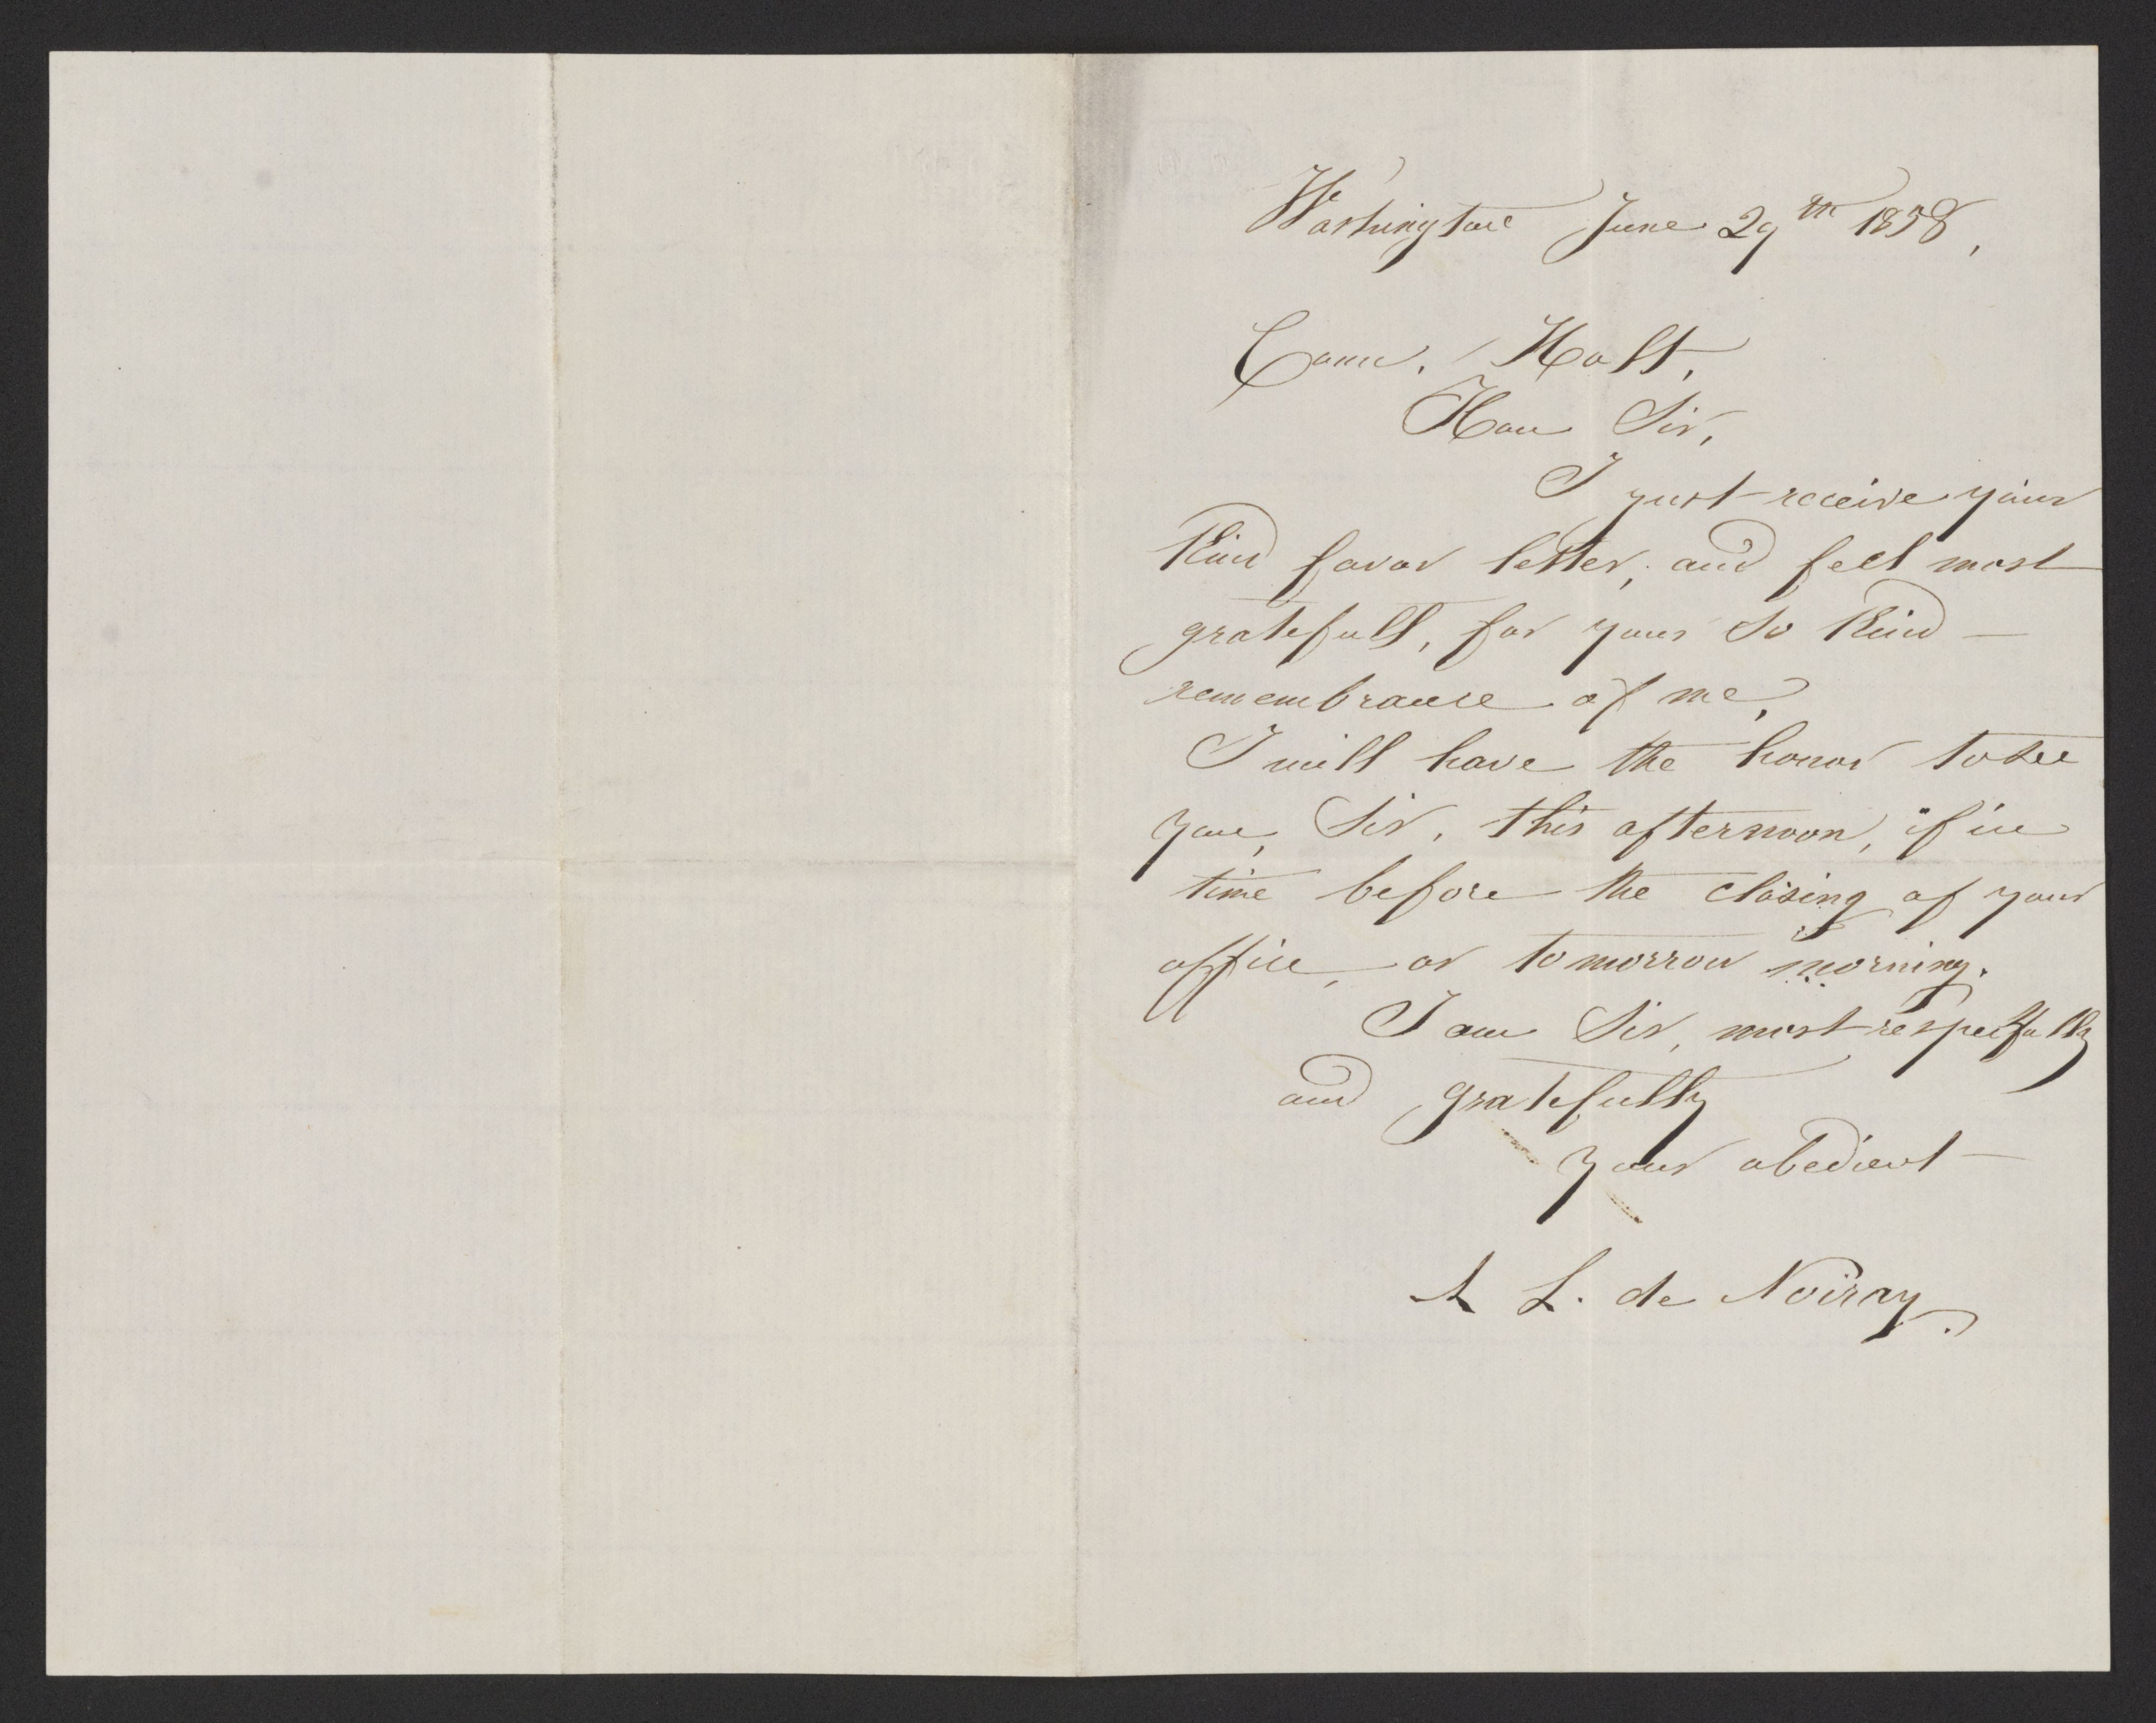 Washington June 29th 1858,
Com. Holt,
Hon Sir,
I just receive your
Kind favor letter, and feel most
gratefull, for your so Kind —
remembrance of me,
I will have the honor to see
you, Sir, this afternoon, if in
time before the closing of your
office, or tomorrow morning.
I am Sir, most respectfully
and gratefully
Your obedient —
A L. de Noiray.